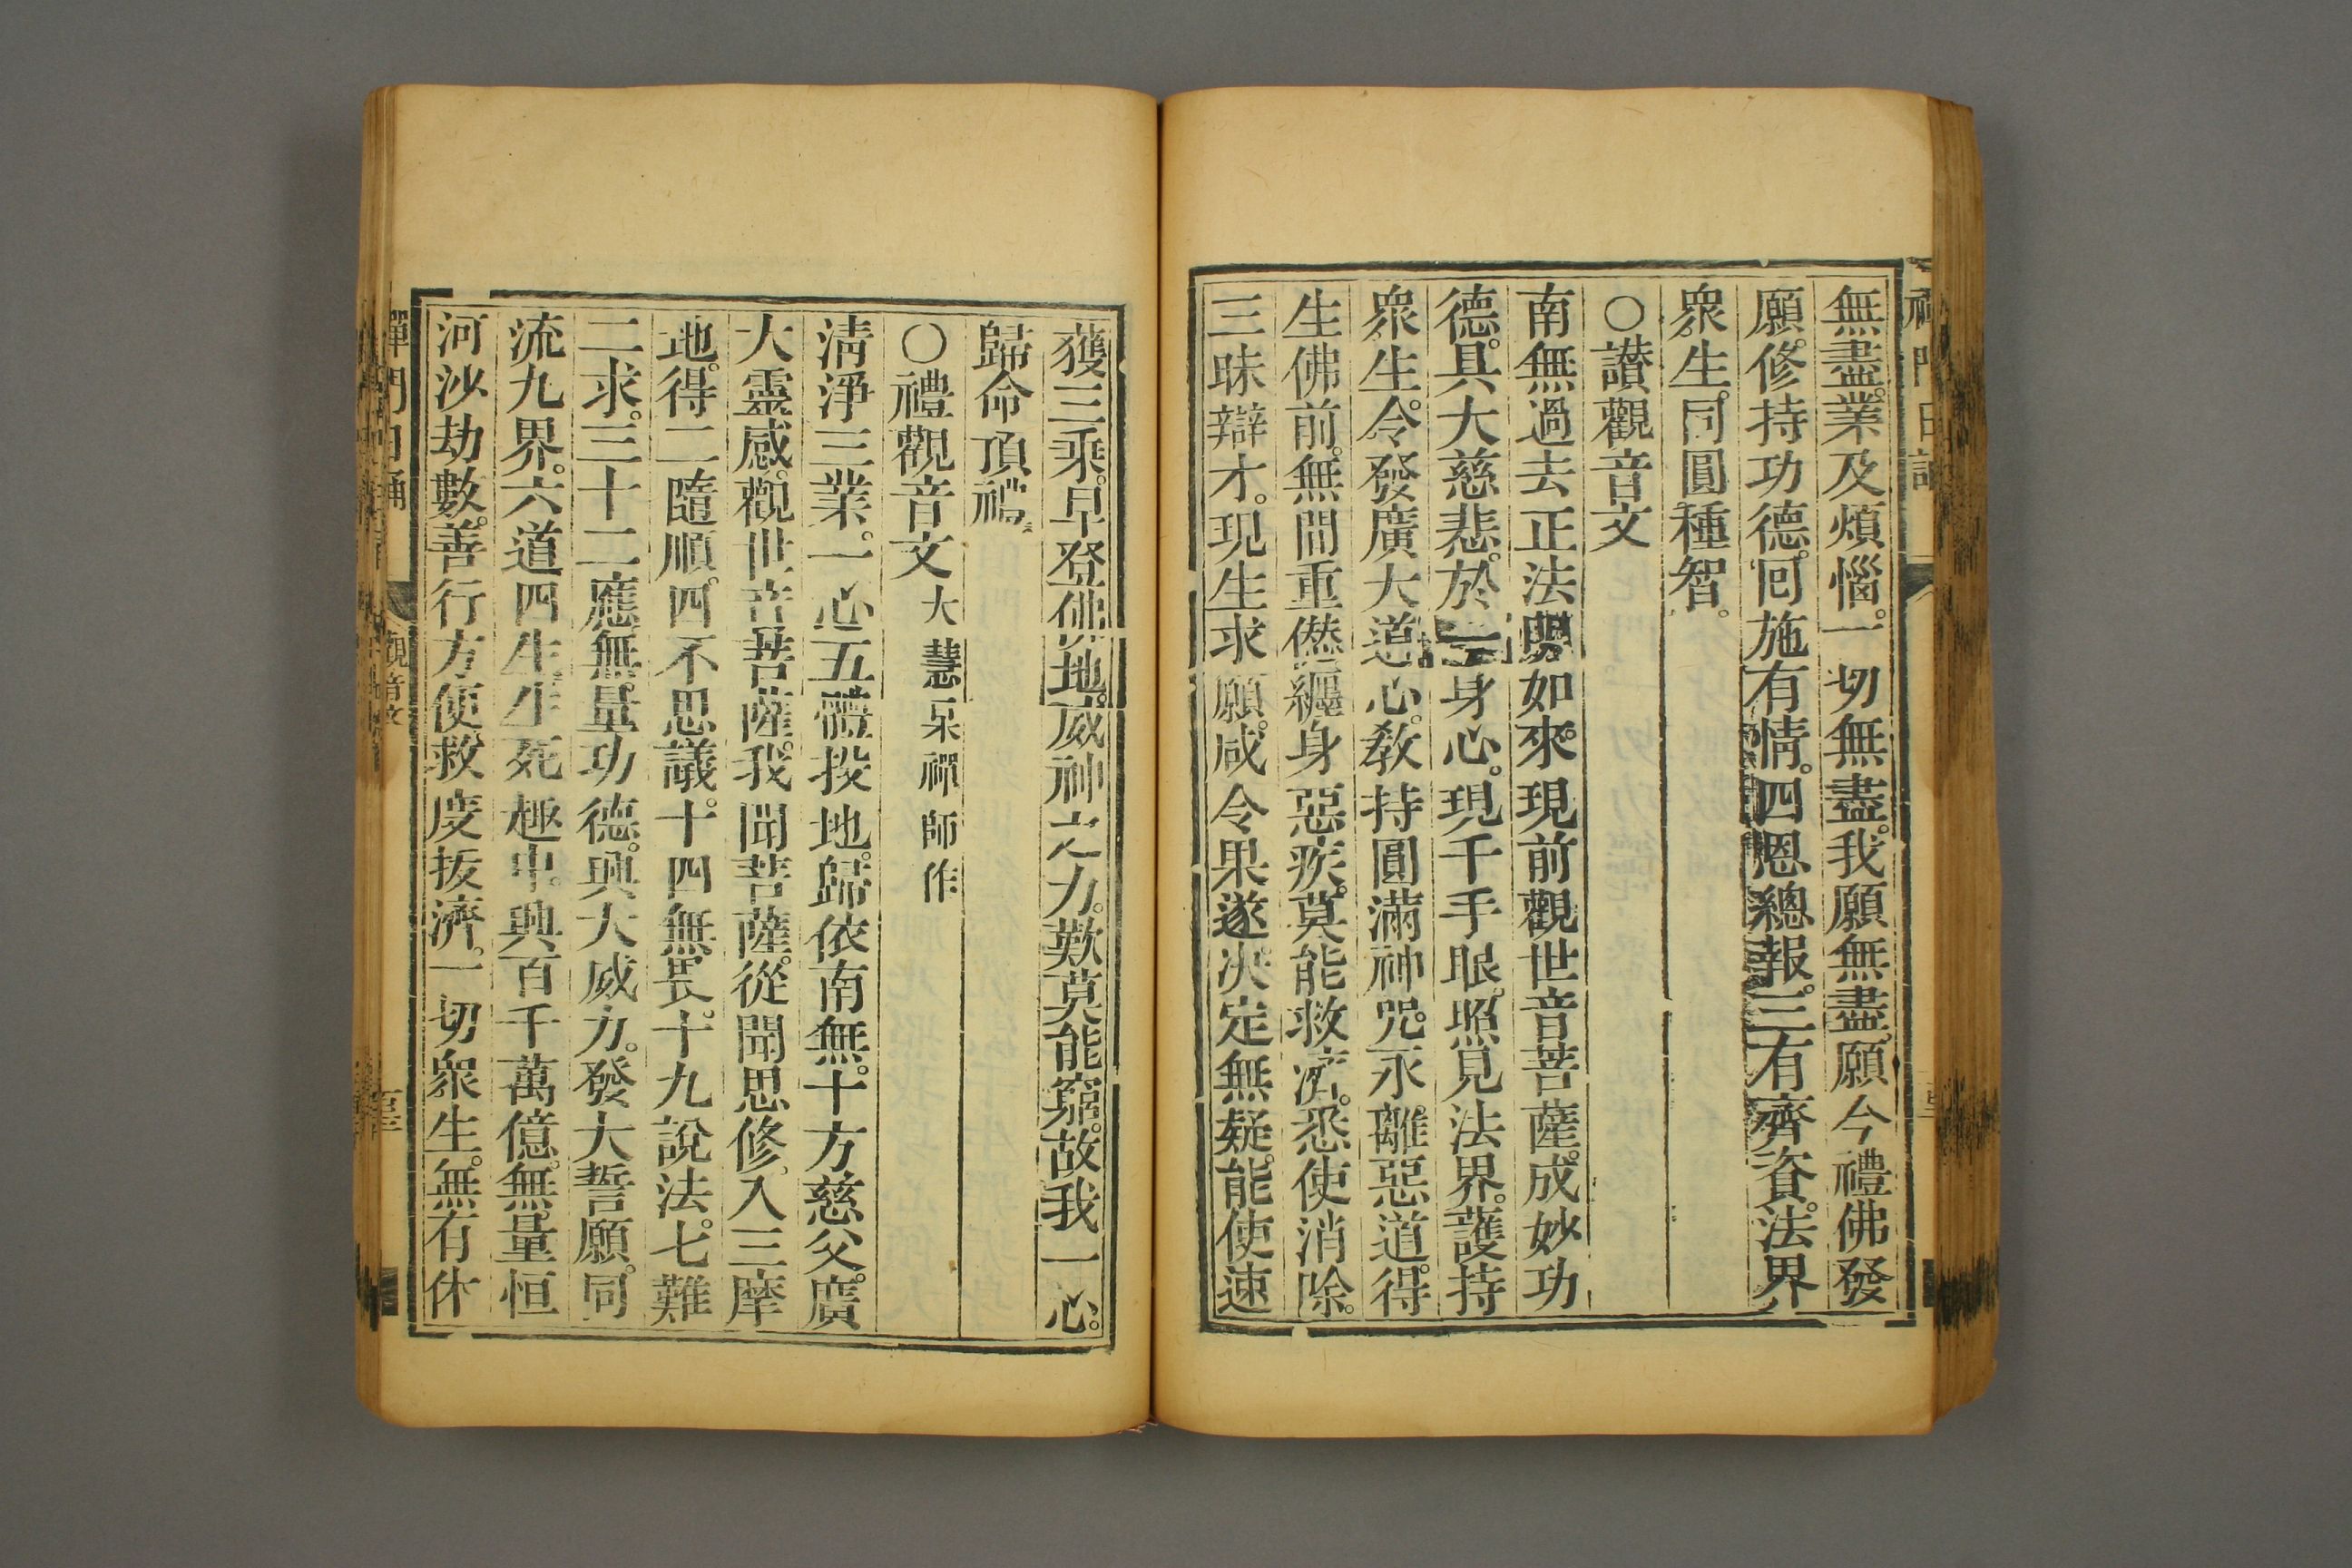 無盡。業及煩惱。一切無盡。我願無盡。願今禮佛發
願。修持功德。囘施有情。四恩總報。三有齊資。法界
衆生。同圓種智。
○讃觀音文
南無過去正法明如來。現前觀世音菩薩。成妙功
德。具大慈悲。於一身心。現千手眼。照見法界。護持
衆生。令發廣大道心。敎持圓滿神咒。永離惡道。得
生佛前。無間重愆。纏身惡疾。莫能救濟。悉使消除。
三昧辯才。現生求願。咸令果遂。决定無疑。能使速
獲三乘。早登佛地。威神之力。歎莫能窮。故我一心。
歸命頂禮。
○禮觀音文 大慧杲禪師作
淸淨三業。一心五體投地。歸依南無。十方慈父。廣
大靈感。觀世音菩薩。我聞菩薩。從聞思修。入三摩
地。得二隨順。四不思議。十四無畏。十九說法。七難
二求。三十二應。無量功德。興大威力。發大誓願。同
流九界。六道四生。生死趣中。興百千萬億。無量恒
河沙劫數。善行方便。救度拔濟。一切衆生。無有休
禪門日誦
觀音文